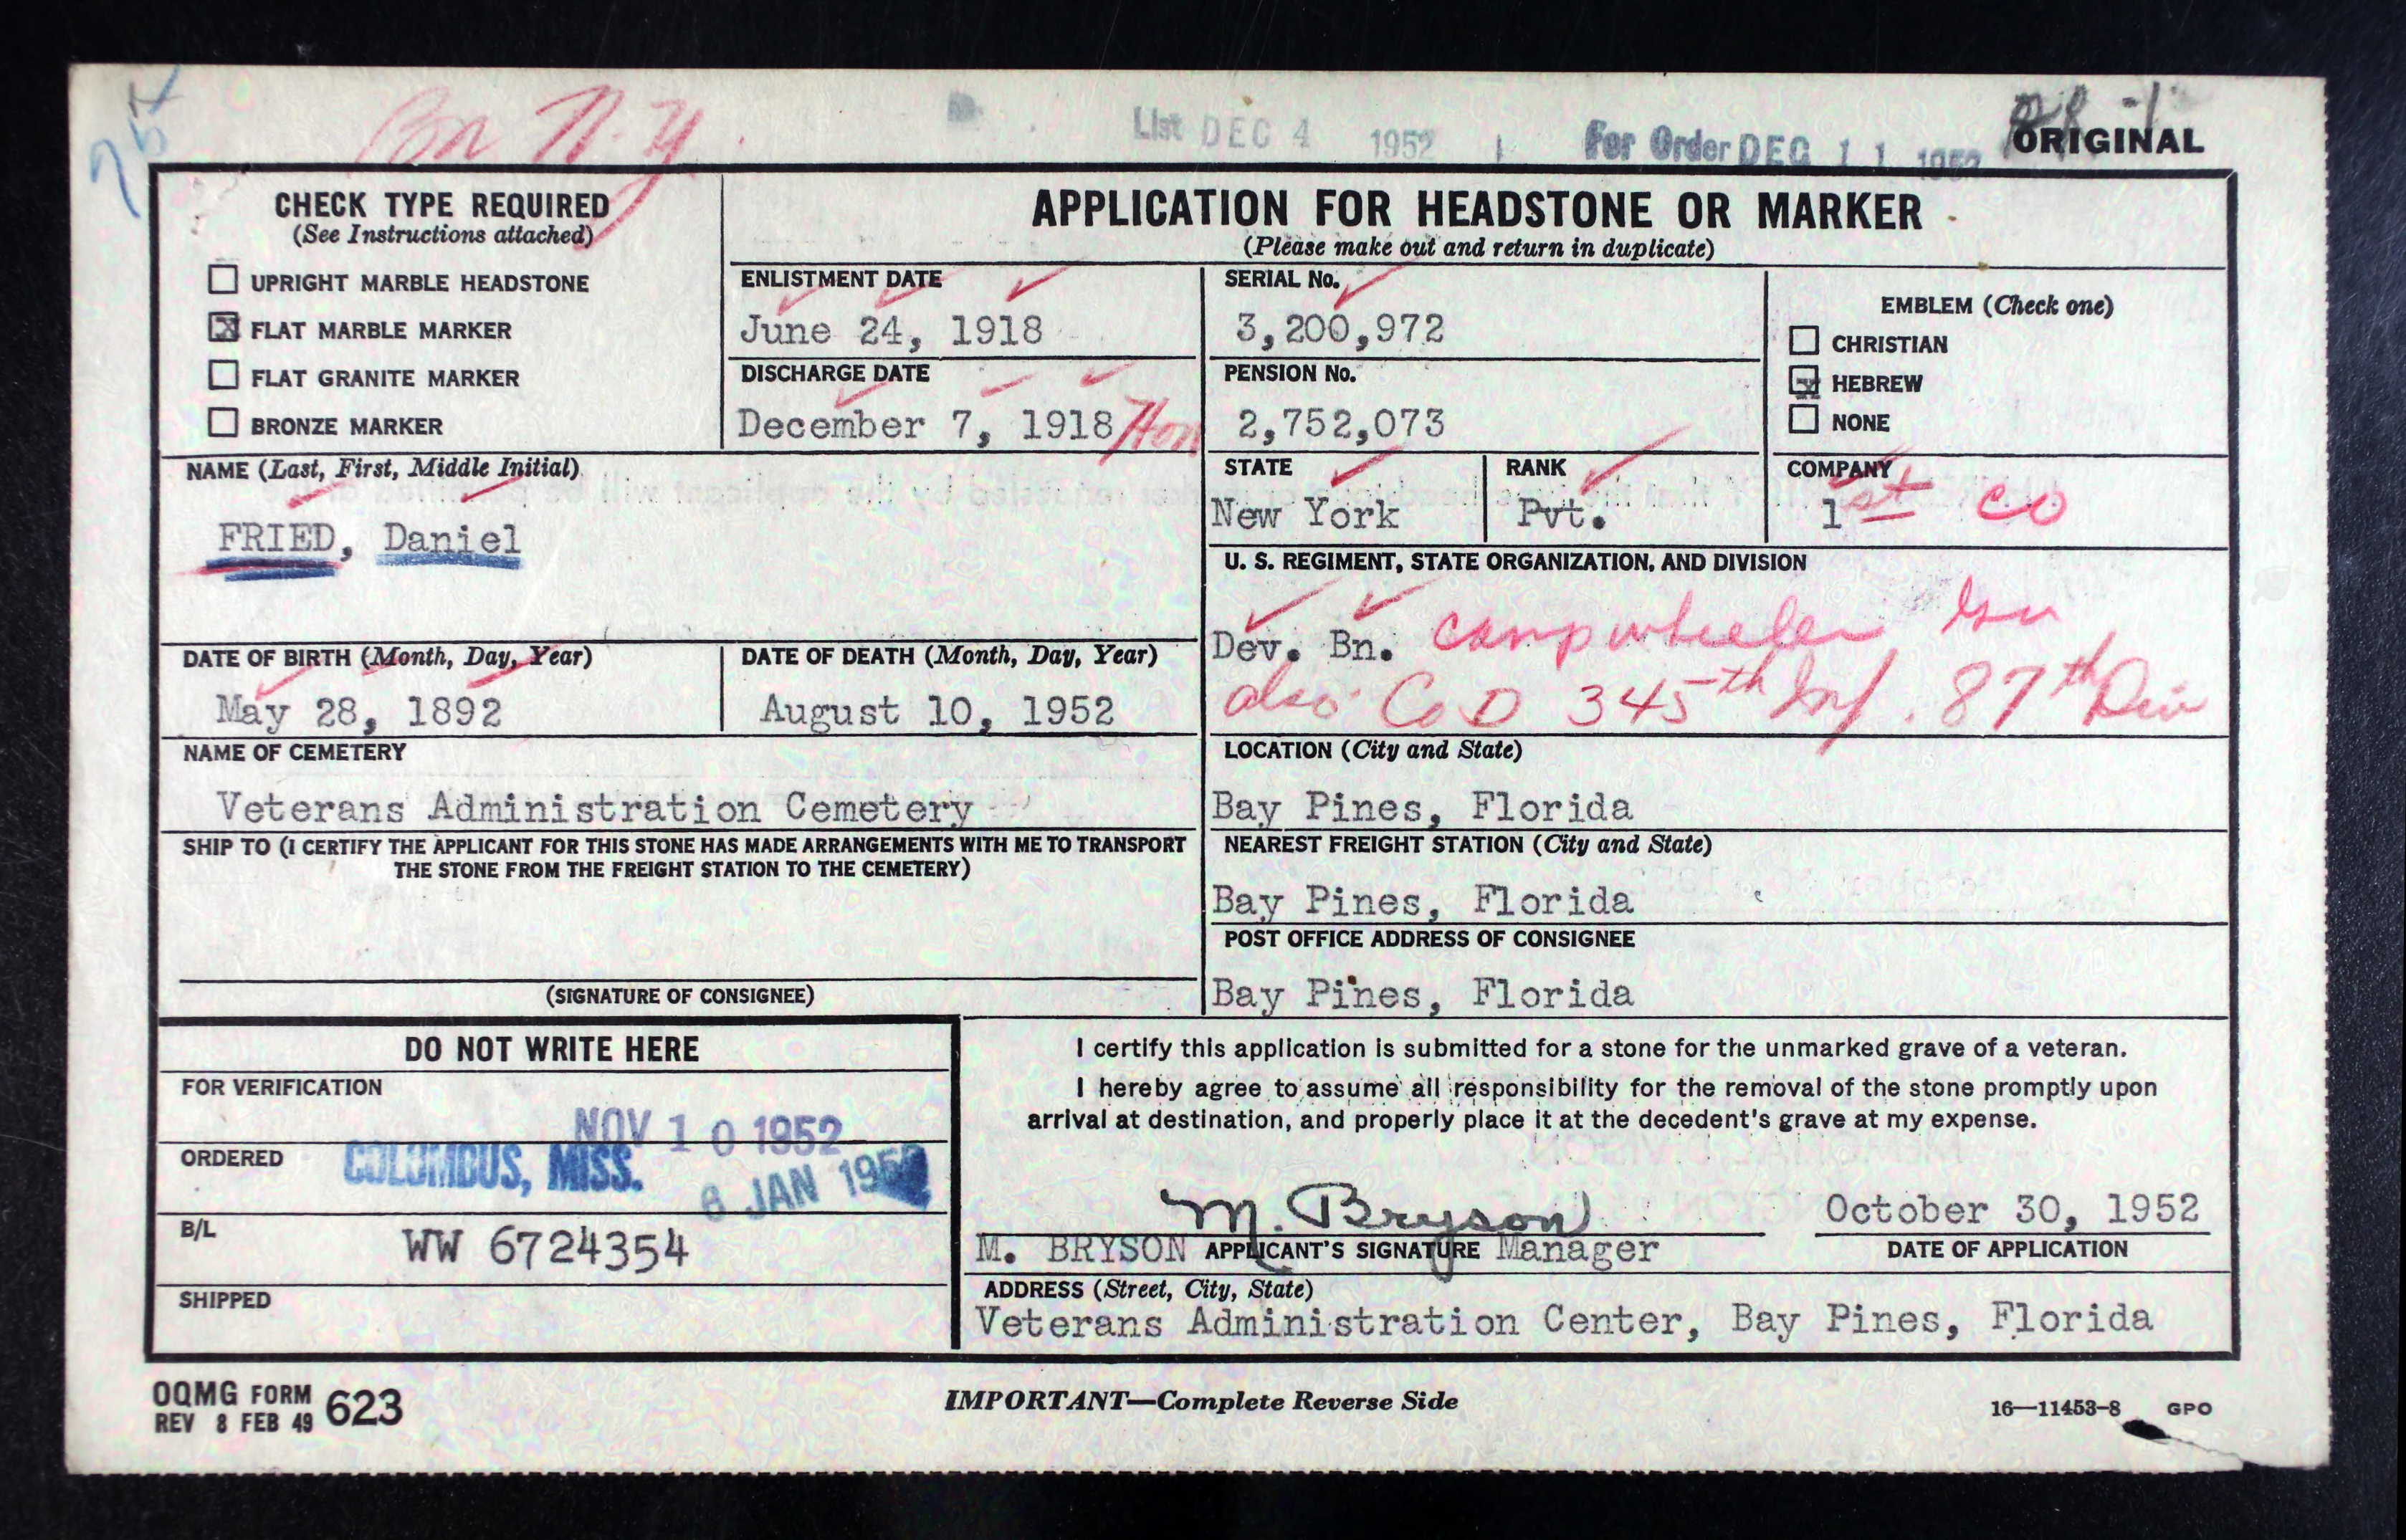 Bn N.Y.
List DEC 4 1952
For Order DEC 11 1952
ORIGINAL
CHECK TYPE REQUIRED
(See Instructions attached)
UPRIGHT MARBLE HEADSTONE
X FLAT MARBLE MARKER
FLAT GRANITE MARKER
BRONZE MARKER
APPLICATION FOR HEADSTONE OR MARKER
(Please make out and return in duplicate)
ENLISTMENT DATE
June 24, 1918
DISCHARGE DATE
December 7, 1918 Hon
SERIAL No.
3,200,972
PENSION No.
2,752,073
EMBLEM (Check one)
CHRISTIAN
X HEBREW
NONE
NAME (Last, First, Middle Initial)
FRIED, Daniel
STATE
New York
RANK
Pvt.
COMPANY
1st Co
U. S. REGIMENT, STATE ORGANIZATION, AND DIVISION
Dev. Bn. Camp Wheeler
also Co D 345th Inf. 87th Div
DATE OF BIRTH (Month, Day, Year)
May 28, 1892
DATE OF DEATH (Month, Day, Year)
August 10, 1952
NAME OF CEMETERY
Veterans Administration Cemetery
LOCATION (City and State)
Bay Pines, Florida
SHIP TO (I CERTIFY THE APPLICANT FOR THIS STONE HAS MADE ARRANGEMENTS WITH ME TO TRANSPORT
THE STONE FROM THE FREIGHT STATION TO THE CEMETERY)
(SIGNATURE OF CONSIGNEE)
NEAREST FREIGHT STATION (City and State)
Bay Pines, Florida
POST OFFICE ADDRESS OF CONSIGNEE
Bay Pines, Florida
DO NOT WRITE HERE
FOR VERIFICATION
NOV 10 1952
ORDERED
COLUMBUS, MISS.
6 JAN
B/L
WW 6724354
SHIPPED
I certify this application is submitted for a stone for the unmarked grave of a veteran.
I hereby agree to assume all responsibility for the removal of the stone promptly upon
arrival at destination, and properly place it at the decedent's grave at my expense.
M. Bryson
October 30, 1952
M. BRYSON APPLICANT'S SIGNATURE Manager
DATE OF APPLICATION
ADDRESS (Street, City, State)
Veterans Administration Center, Bay Pines, Florida
OQMG FORM 623
REV 8 FEB 49
IMPORTANT—Complete Reverse Side
16—11453-8 GPO